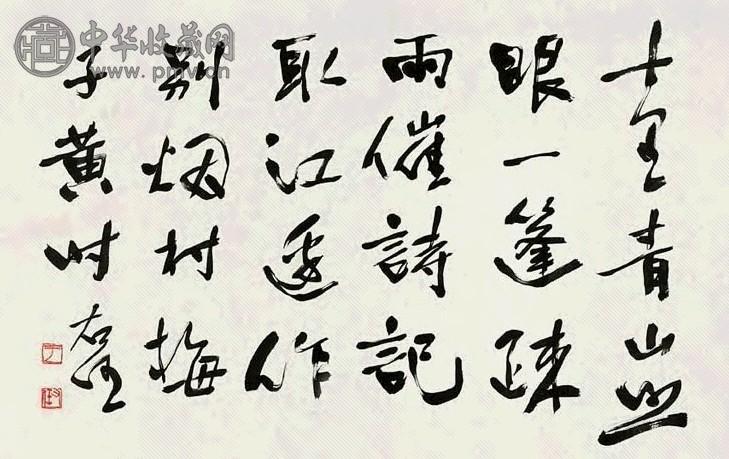 中华收藏网
www.pmv.cn
十里青山照
眼一篷疎
雨催詩記
取江邊作
別烟村梅
子黄时